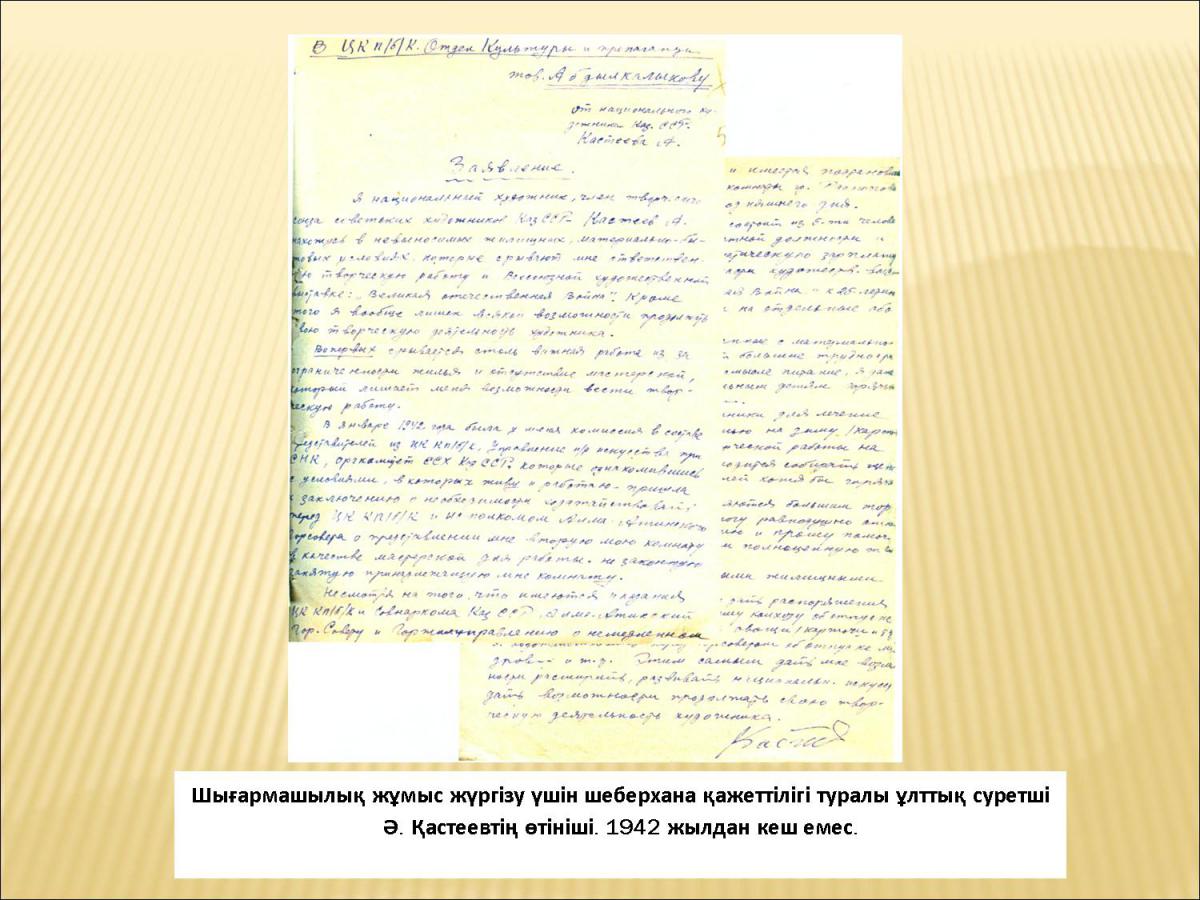 В ЦК КП/б/К. Отдел Культуры и пропаганды
тов. Абдылкалыкову
от национального ху-
дожника Каз. ССР.
Кастеева А.
Заявление.
Я национальный художник, член творческого
союза советских художников КазССР Кастеев А.
находясь в невыносимых жилищных, материально-бы-
товых условиях, которые срывают мне ответствен-
ную творческую работу и Всесоюзной художественной
выставке: "Великая отечественная Война". Кроме
того я вообще лишен всякой возможности продолжать
свою творческую деятельность художника.
Вопервых срывается столь важная работа из за
ограниченности жилья и отсутствие мастерской,
который лишает меня возможности вести твор-
ческую работу.
В январе 1942 года была у меня комиссия в составе
представителей из ЦК КП/б/К, Управление п/д искусства при
СНК, оргкомитет ССХ КазССР. которые ознакомившись
с условиями, в которых живу и работаю- пришла
к заключению о необходимости ходатайствовать
через ЦК КП/б/К и Исполкомом Алма-Атинского
горсовета о представлении мне вторую мою комнату
в качестве мастерской для работы. не законную
занятую принадлежащую мне комнату.
Несмотря на того, что имеются указания
ЦК КП/б/К и Совнаркома КазССР Алма-Атинский
Гор.Совету и Горжилуправлению о немедленном
комнаты
дня.
состоит из 5-ти челове
должности и
зарплату
художеств.
Война" к 25-летию
и на отдельные
с материально
большие трудности
смысле питание, я даже
детям горячи
для лечение
на зиму /карто
работы на
собирать
хотя бы горяча
большим
равнодушно
и прошу помоч
полноценную
жилищными
дать распоряжения
об отпуске
овощи /карточи и
об отпуске
дров и т.д. Этим самым дать мне возмо
ности расширить, развивать национальн. искус
дать возможности продолжать свою твор-
ческую деятельность художника.
Кастеев
Шығармашылық жұмыс жүргізу үшін шеберхана қажеттілігі туралы ұлттық суретші
Ә. Қастеевтің өтініші. 1942 жылдан кеш емес.